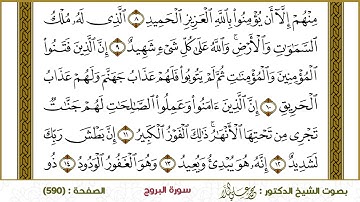 مِنْهُمْ إِلَّآ أَن يُؤْمِنُوا۟ بِٱللَّهِ ٱلْعَزِيزِ ٱلْحَمِيدِ ٨ ٱلَّذِى لَهُۥ مُلْكُ
ٱلسَّمَٰوَٰتِ وَٱلْأَرْضِ ۚ وَٱللَّهُ عَلَىٰ كُلِّ شَىْءٍ شَهِيدٌ ٩ إِنَّ ٱلَّذِينَ فَتَنُوا۟
ٱلْمُؤْمِنِينَ وَٱلْمُؤْمِنَٰتِ ثُمَّ لَمْ يَتُوبُوا۟ فَلَهُمْ عَذَابُ جَهَنَّمَ وَلَهُمْ عَذَابُ
ٱلْحَرِيقِ ١٠ إِنَّ ٱلَّذِينَ ءَامَنُوا۟ وَعَمِلُوا۟ ٱلصَّٰلِحَٰتِ لَهُمْ جَنَّٰتٌ
تَجْرِى مِن تَحْتِهَا ٱلْأَنْهَٰرُ ۚ ذَٰلِكَ ٱلْفَوْزُ ٱلْكَبِيرُ ١١ إِنَّ بَطْشَ رَبِّكَ
لَشَدِيدٌ ١٢ إِنَّهُۥ هُوَ يُبْدِئُ وَيُعِيدُ ١٣ وَهُوَ ٱلْغَفُورُ ٱلْوَدُودُ ١٤ ذُو
بصوت الشيخ الدكتور : سورة البروج الصفحة : (590)